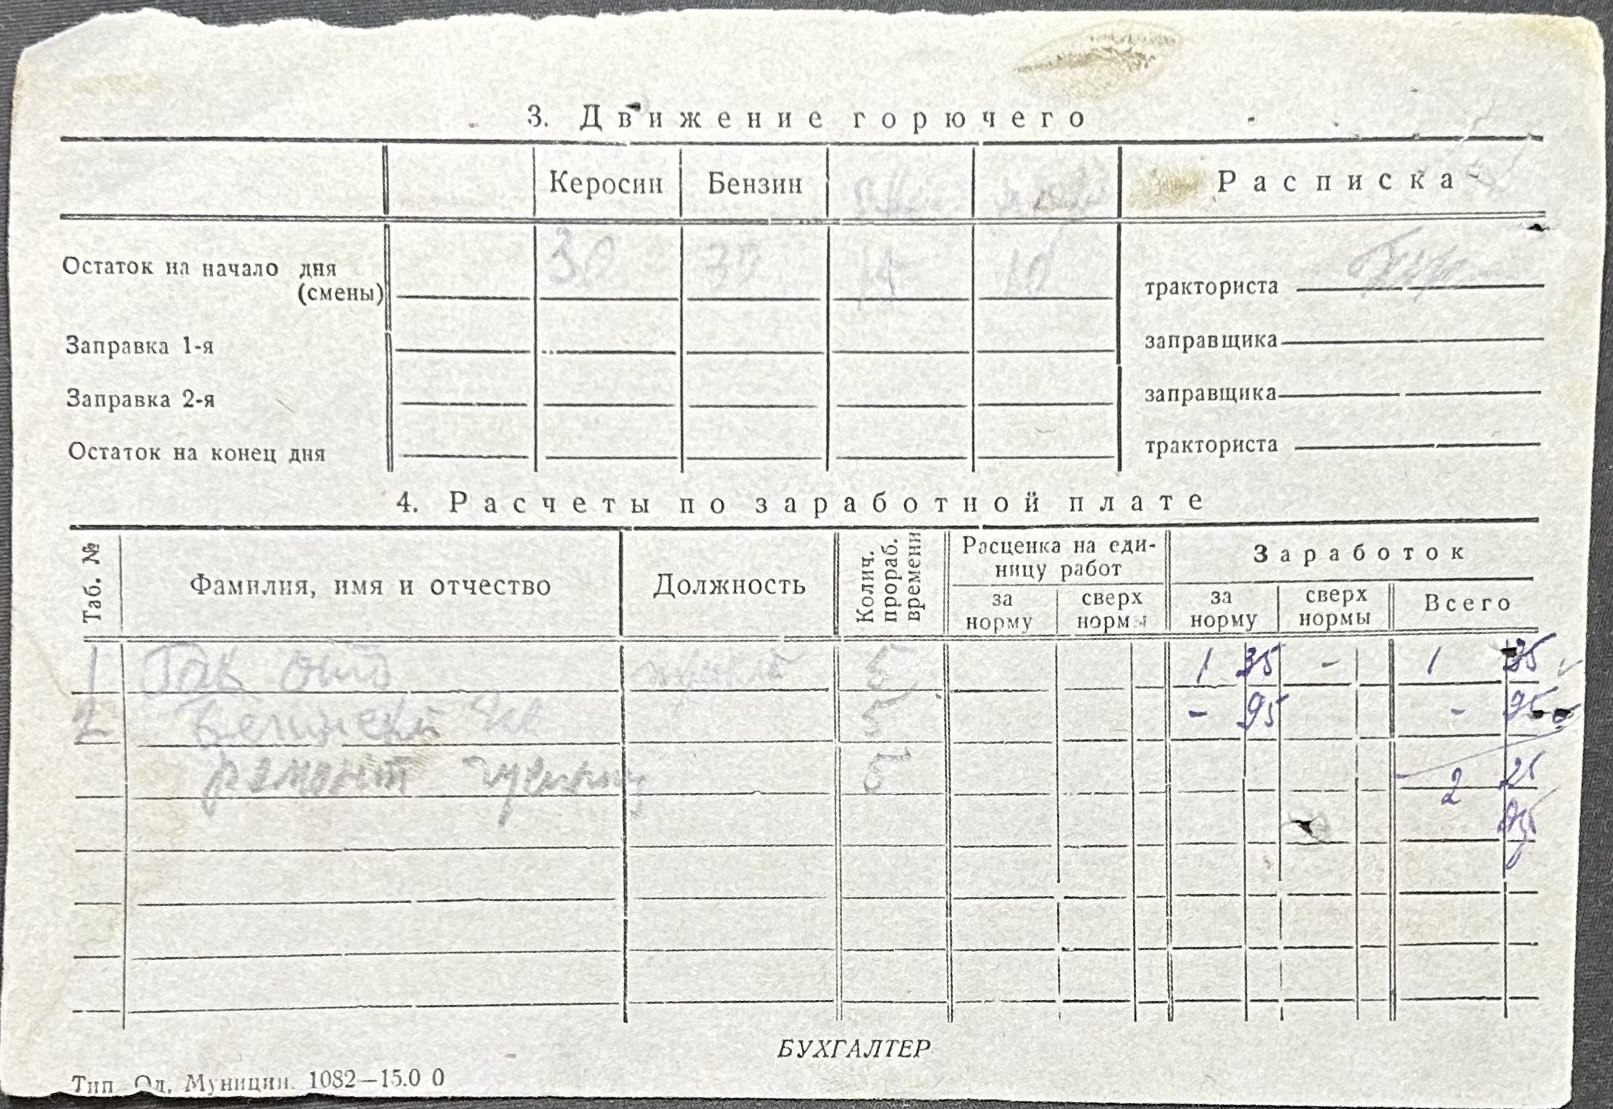 3. Движение горючего
Керосин Бензин Расписка
Остаток на начало дня
(смены) 30 30 14 10
тракториста
Заправка 1-я заправщика
Заправка 2-я заправщика
Остаток на конец дня тракториста
4. Расчеты по заработной плате
Таб. № Фамилия, имя и отчество Должность Колич. прораб. времени Расценка на единицу работ Заработок
за норму сверх нормы за норму сверх нормы Всего
1 5 1 35 - 1 35
2 5 - 95 - 95
ремонт 5 2 25
БУХГАЛТЕР
Тип. Од. Муницип. 1082—15.0 0